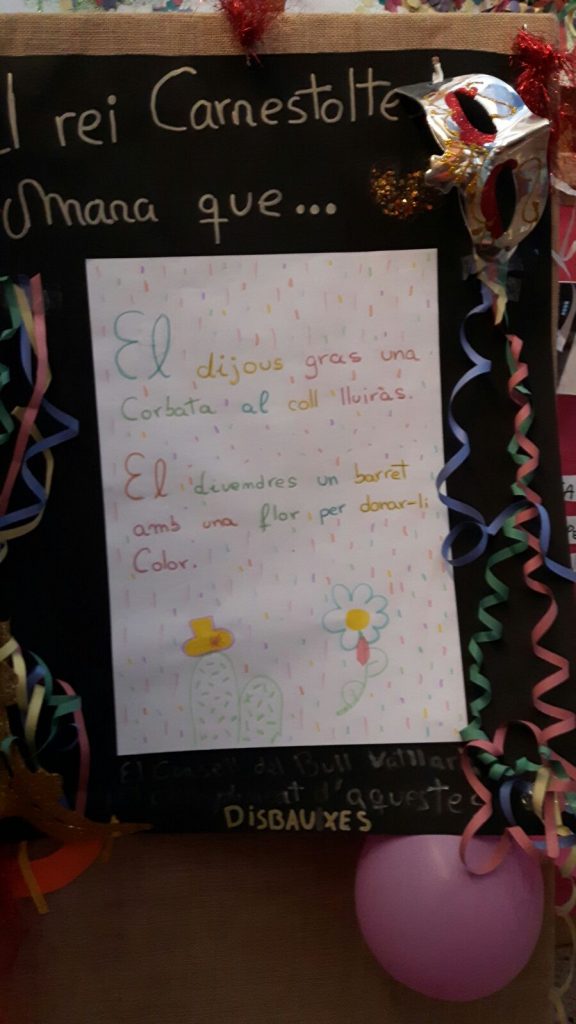 rei Carnestolte
mana que...
El dijous gras una
Corbata al coll lluiràs.
El divendres un barret
amb una flor per donar-li
Color.
El Consell del Bull
d'aquestes
DISBAUXES